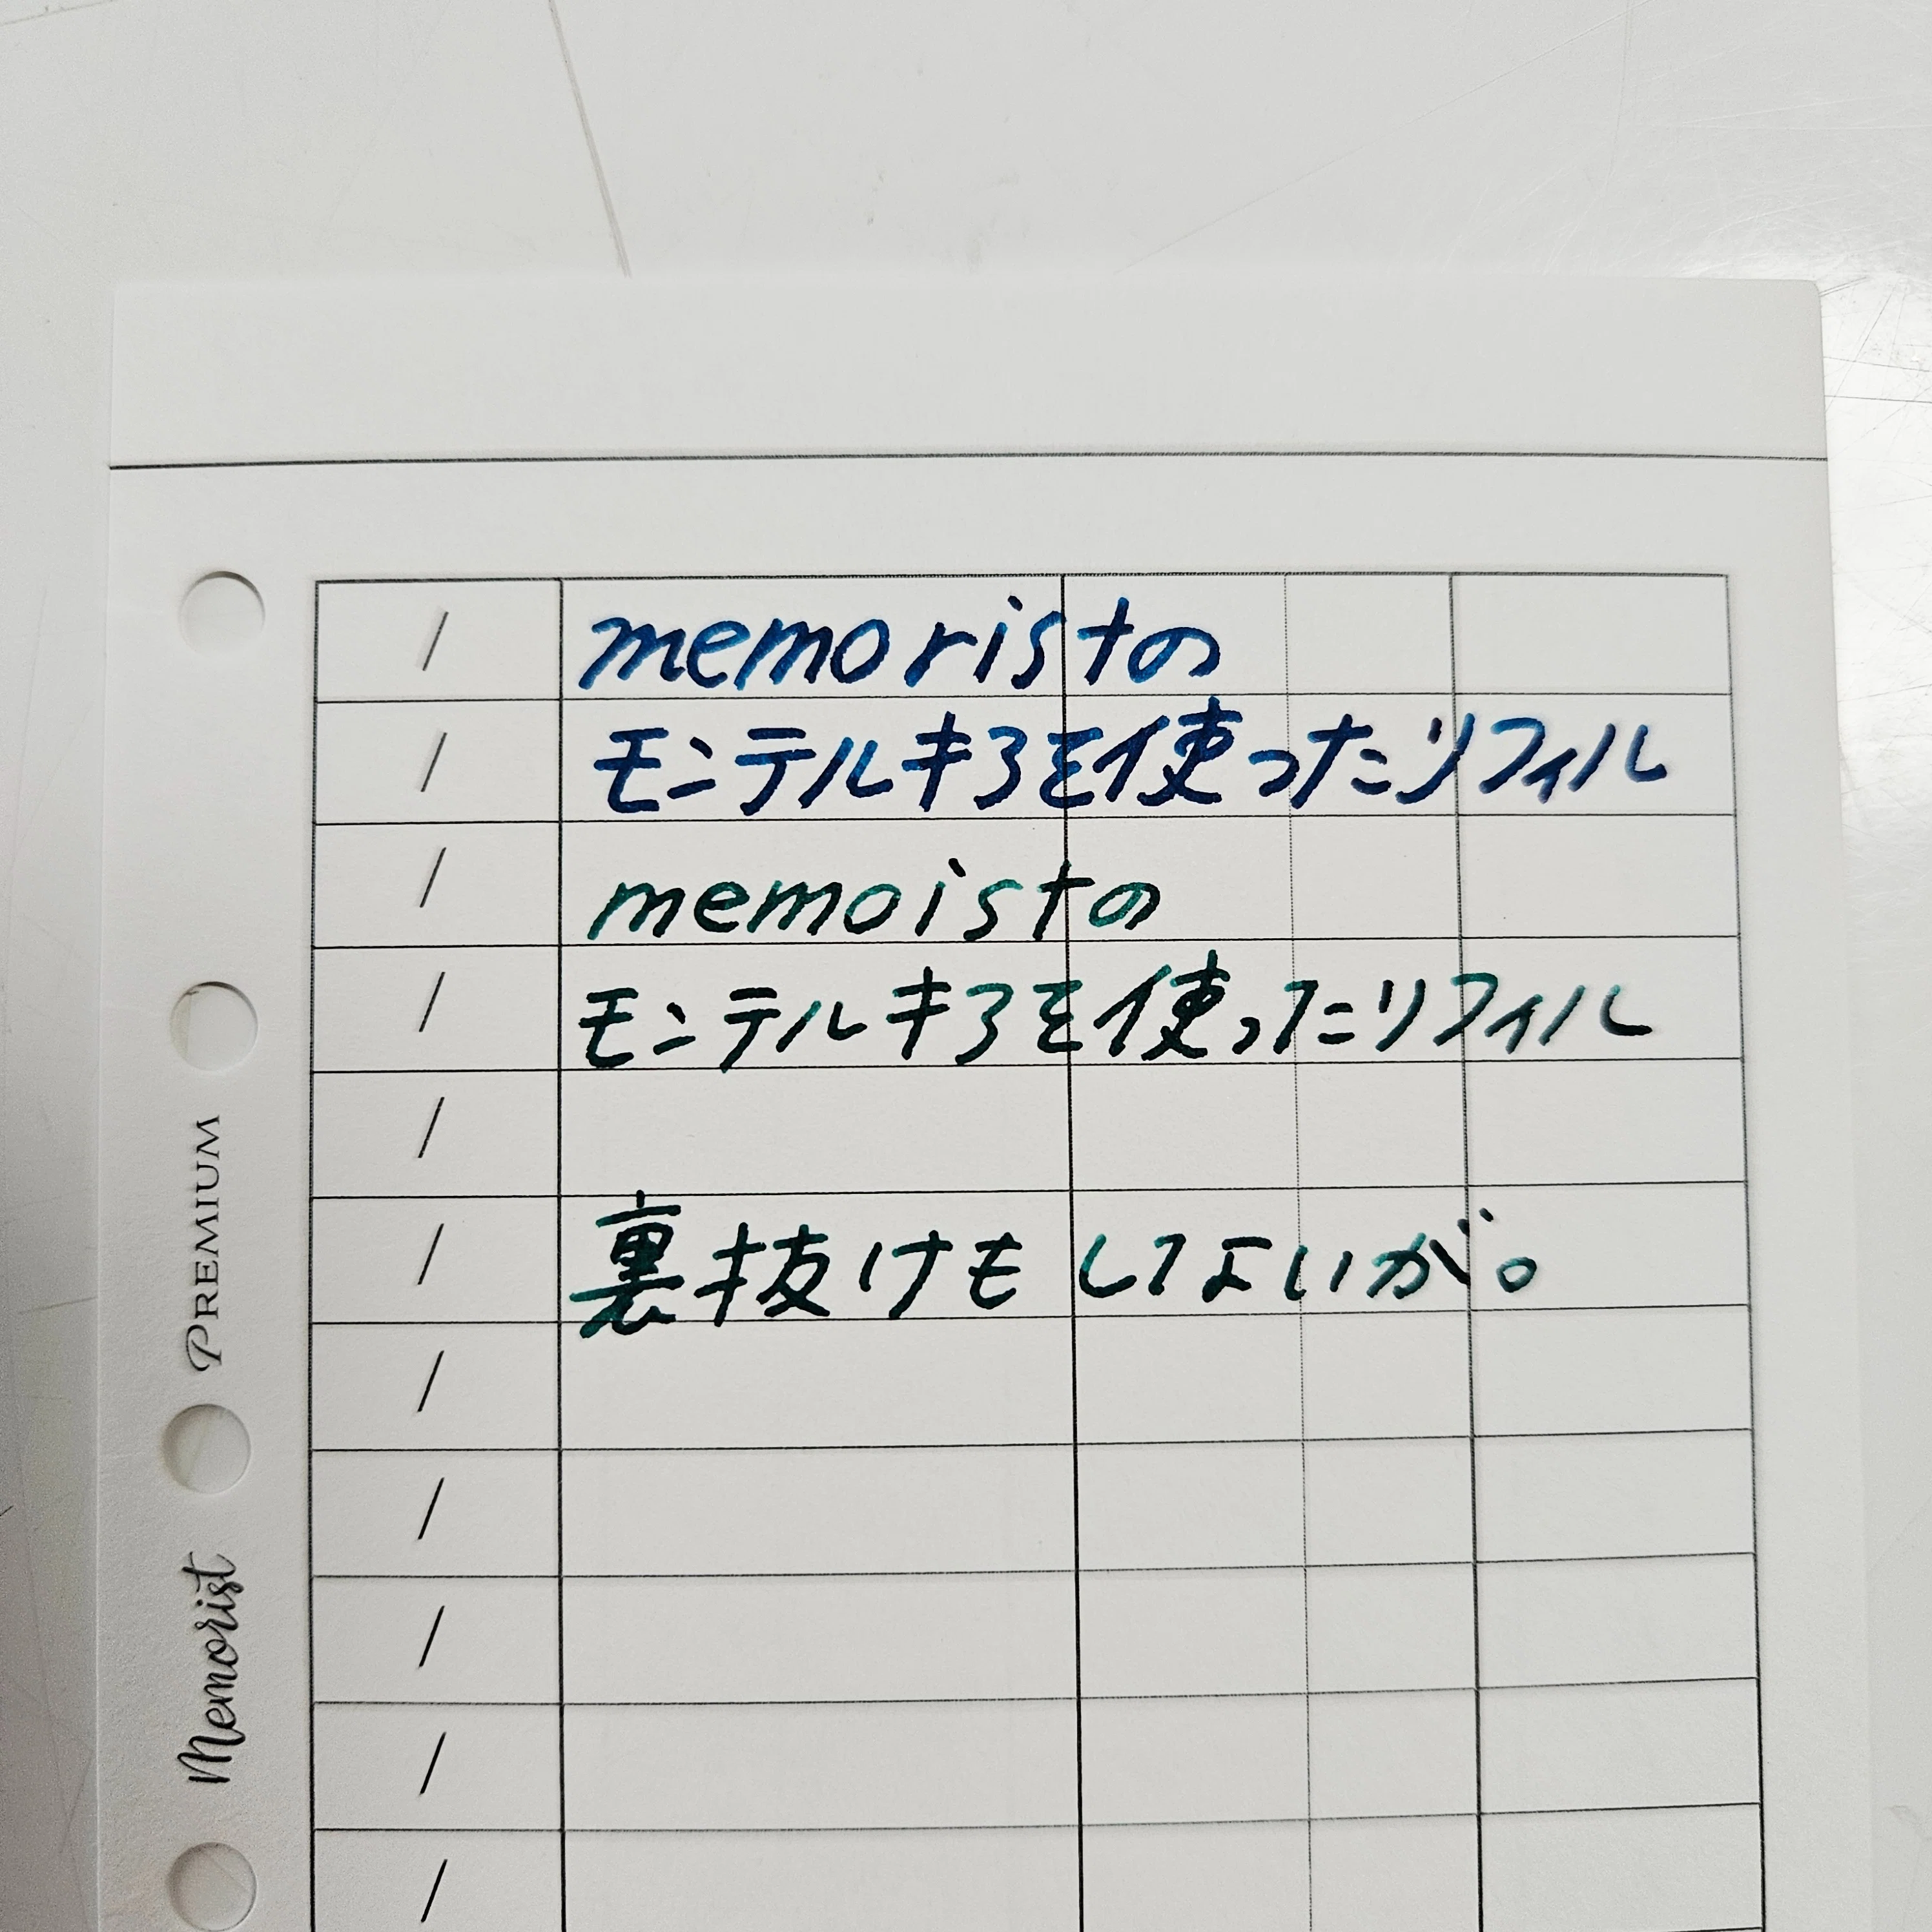 / memoristの
/ モンテルキアを使ったリフィル
/ memoistの
/ モンテルキアを使ったリフィル
/
/ 裏抜けもしてないが。
/
/
/
/
/
PREMIUM
Memorist